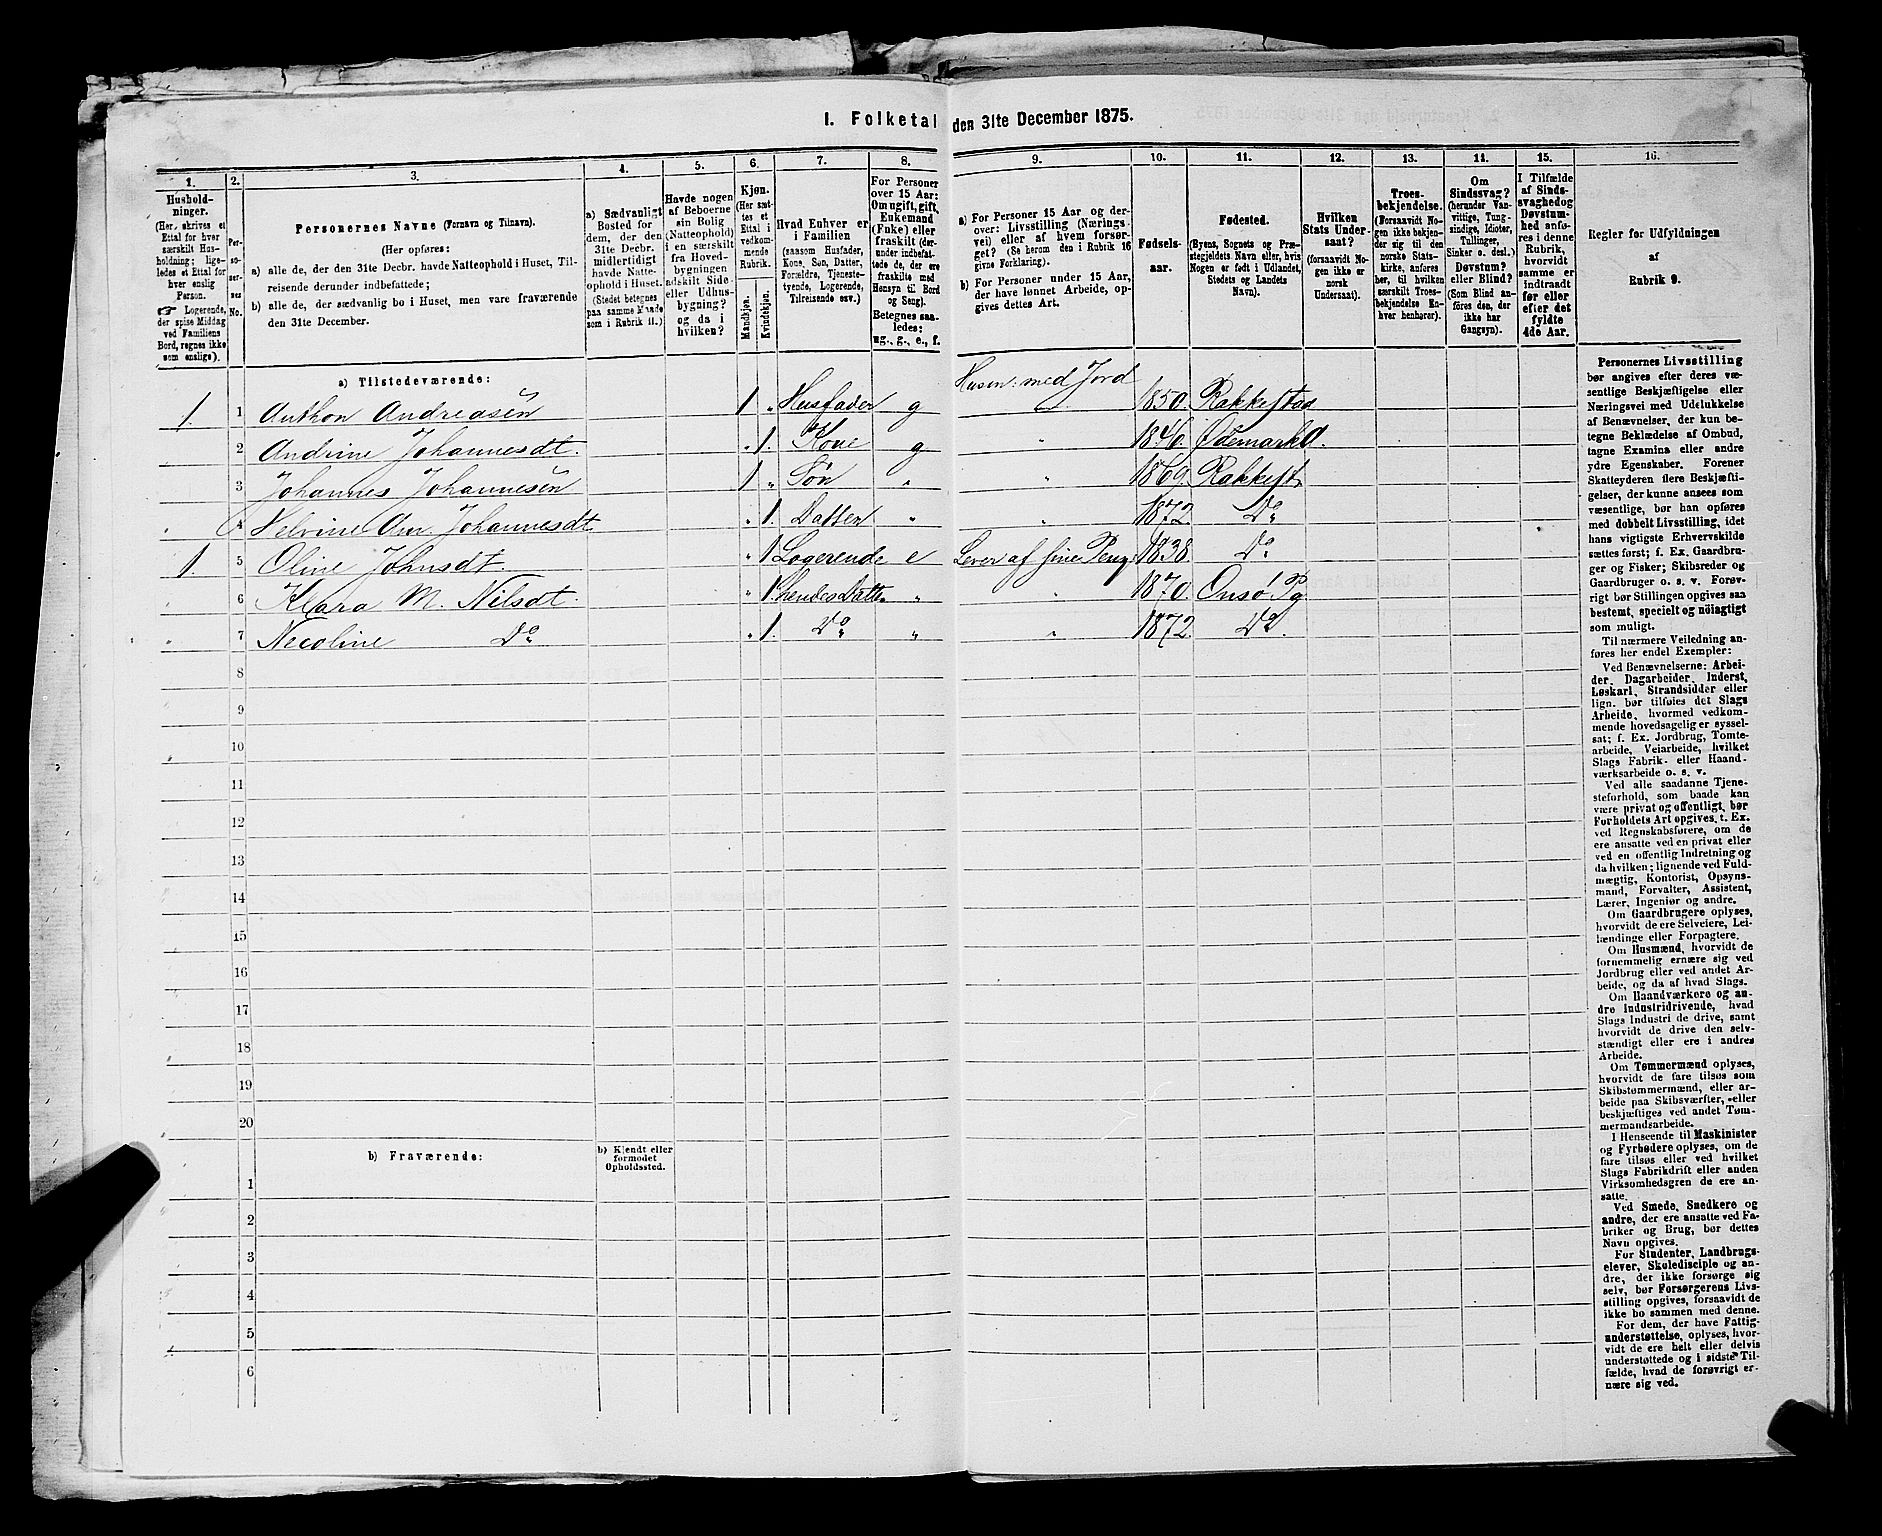 I. Folketal den 31te December 1875.
1. 2. 3. 4. 5. 6. 7. 8. 9. 10. 11. 12. 13. 14. 15. 16.
Hushold-
ninger.
(Her skrives et
Ettal for hver
særskilt Hus-
holdning; lige-
ledes et Ettal for
hver enslig
Person.
☞ Logerende,
der spise Middag
ved Familiens
Bord, regnes ikke
som enslige).
Per-
so-
ner-
nes
No.
Personernes Navne (Fornavn og Tilnavn).
(Her opføres:
a) alle de, der den 31te Decbr. havde Natteophold i Huset, Til-
reisende derunder indbefattede;
b) alle de, der sædvanlig bo i Huset, men vare fraværende
den 31te December.
a) Sædvanligt
Bosted for
dem, der den
31te Decbr.
midlertidigt
havde Natte-
ophold i Huset.
(Stedet betegnes
paa samme Maade
som i Rubrik 11.)
Havde nogen
af Beboerne
sin Bolig
(Natteophold)
i en særskilt
fra Hoved-
bygningen
adskilt Side-
eller Udhus-
bygning?
og da i
hvilken?
Kjøn.
(Her sæt-
tes et
Ettal i
vedkom-
mende
Rubrik.
Mandkjøn.
Kvindekjøn.
Hvad Enhver er
i Familien
(saasom Husfader,
Kone, Søn, Datter,
Forældre, Tjeneste-
tyende, Logerende,
Tilreisende osv.)
For Personer
over 15 Aar:
Om ugift, gift,
Enkemand
(Enke) eller
fraskilt (der-
under indbefat-
tede de, der ere
fraskilte med
Hensyn til Bord
og Seng).
Betegnes saa-
ledes:
ug., g., e., f.
a) For Personer 15 Aar og der-
over: Livsstilling (Nærings-
vei) eller af hvem forsør-
get? (Se herom den i Rubrik 16
givne Forklaring).
b) For Personer under 15 Aar,
der have lønnet Arbeide, op-
gives dettes Art.
Fødsels-
aar.
Fødested.
(Byens, Sognets og Præ-
stegjeldets Navn eller, hvis
Nogen er født i Udlandet,
Stedets og Landets
Navn).
Hvilken
Stats Under-
saat?
(forsaavidt No-
gen ikke er
norsk
Undersaat).
Troes-
bekjendelse.
(Forsaavidt No-
gen ikke bekjen-
der sig til den
norske Stats-
kirke, anføres
her, til hvilken
særskilt Troes-
bekjendelse En-
hver henhører).
Om
Sindssvag?
(herunder Van-
vittige, Tung-
sindige, Idioter,
Tullinger,
Sinker o. desl.)
Døvstum?
eller Blind?
(Som Blind an-
føres den, der
ikke har
Gangsyn).
I Tilfælde
af Sinds-
svaghed og
Døvstum-
hed anfø-
res i denne
Rubrik,
hvorvidt
samme er
indtraadt
før eller
efter det
fyldte
4de Aar.
Regler for Udfyldningen
af
Rubrik 9.
a) Tilstedeværende:
Husm: med Jord
1. 1 Anthon Andreasen 1 „ Husfader g „ 1850. Rakkestad
2 Andrine Johannesdt. „ 1. Kone g „ 1846. Ødemarks
3 Johannes Johannesen 1 „ Søn „ „ 1869. Rakkest.
„ 4 Helvine Am. Johannesdt. „ 1. Datter „ „ 1872. Do
1. 5 Oline Johnsdt. „ 1 Logerende e Lever af sine Peng. 1838. Do
„ 6 Klara M. Nilsdt. „ 1. hendes Datter „ „ 1870. Onsø Pg
„ 7 Necoline Do „ 1. Do „ „ 1872. Do.
8
9
10
11
12
13
14
15
16
17
18
19
20
b) Fraværende:
b) Kjendt eller
formodet
Opholdssted.
1
2
3
4
5
6
Personernes Livsstilling
bør angives efter deres væ-
sentlige Beskjæftigelse eller
Næringsvei med Udelukkelse
af Benævnelser, der kun be-
tegne Beklædelse af Ombud,
tagne Examina eller andre
ydre Egenskaber. Forener
Skatteyderen flere Beskjæfti-
gelser, der kunne ansees som
væsentlige, bør han opføres
med dobbelt Livsstilling, idet
hans vigtigste Erhvervskilde
sættes først; f. Ex. Gaardbru-
ger og Fisker; Skibsreder og
Gaardbruger o. s. v. Forøv-
rigt bør Stillingen opgives saa
bestemt, specielt og nøiagtigt
som muligt.
Til nærmere Veiledning an-
føres her endel Exempler:
Ved Benævnelserne: Arbei-
der, Dagarbeider, Inderst,
Løskarl, Strandsidder eller
lign. bør tilføies det Slags
Arbeide, hvormed vedkom-
mende hovedsagelig er syssel-
sat; f. Ex. Jordbrug, Tomte-
arbeide, Veiarbeide, hvilket
Slags Fabrik- eller Haand-
værksarbeide o. s. v.
Ved alle saadanne Tjene-
steforhold, som baade kan
være privat og offentligt, bør
Forholdets Art opgives, t. Ex.
ved Regnskabsførere, om de
ere ansatte ved en privat eller
ved en offentlig Indretning og
da hvilken; lignende ved Fuld-
mægtig, Kontorist, Opsyns-
mand, Forvalter, Assistent,
Lærer, Ingeniør og andre.
Om Gaardbrugere oplyses,
hvorvidt de ere Selveiere, Lei-
lændinge eller Forpagtere.
Om Husmænd, hvorvidt de
fornemmelig ernære sig ved
Jordbrug eller ved andet Ar-
beide, og da af hvad Slags.
Om Haandværkere og an-
dre Industridrivende, hvad
Slags Industri de drive, samt
hvorvidt de drive den selv-
stændigt eller ere i andres
Arbeide.
Om Tømmermænd oplyses,
hvorvidt de fare tilsøs som
Skibstømmermænd, eller ar-
beide paa Skibsværfter, eller
beskjæftiges ved andet Tøm-
mermandsarbeide.
I Henseende til Maskinister
og Fyrbødere oplyses, om de
fare tilsøs eller ved hvilket
Slags Fabrikdrift eller anden
Virksomhedsgren de ere an-
satte.
Ved Smede, Snedkere og
andre, der ere ansatte ved Fa-
briker og Brug, bør dettes
Navn opgives.
For Studenter, Landbrugs-
elever, Skoledisciple og an-
dre, der ikke forsørge sig
selv, bør Forsørgerens Livs-
stilling opgives, forsaavidt de
ikke bo sammen med denne.
For dem, der have Fattig-
understøttelse, oplyses, hvor-
vidt de ere helt eller delvis
understøttede og i sidste Til-
fælde, hvad de forøvrigt er-
nære sig ved.